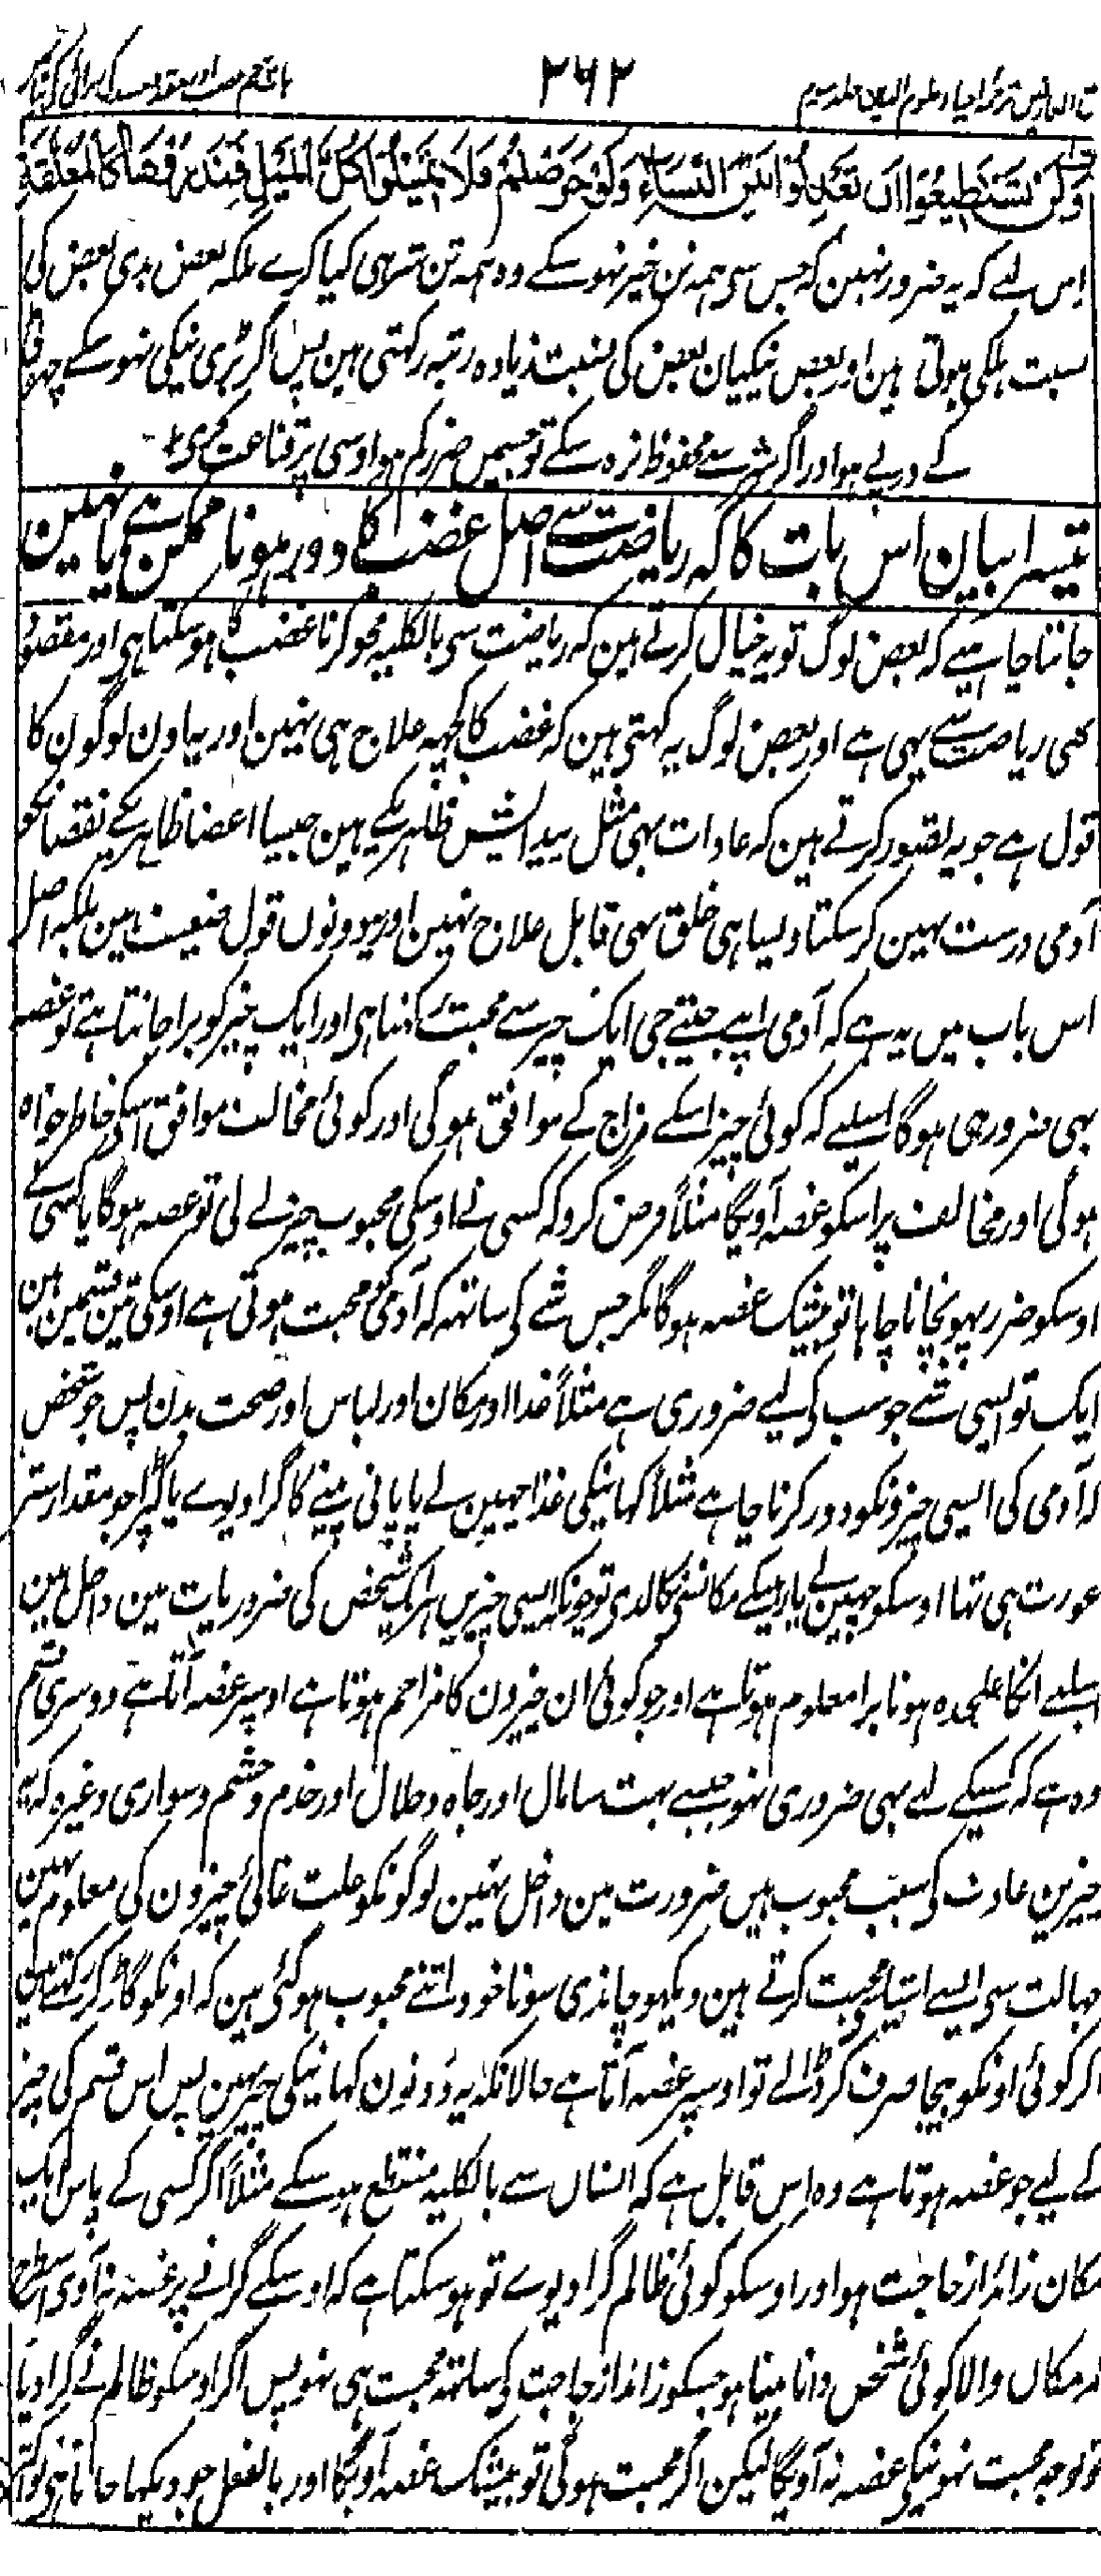 مذاق العارفین ترجمہ احیاء علوم الدین جلد سوم
۲۶۲
وَلَنْ تَسْتَطِيعُوا اَنْ تَعْدِلُوا بَيْنَ النِّسَاءِ وَلَوْ حَرَصْتُمْ فَلَا تَمِيلُوا كُلَّ الْمَيْلِ فَتَذَرُوهَا كَالْمُعَلَّقَةِ
اس لئے کہ یہ ضرور نہین کہ جس سی ہمہ تن خیر نہو سکے وہ ہمہ تن شر ہی کیا کرے بلکہ بعض بدی بعض کی
نسبت ہلکی ہوتی ہین اور بعض نیکیان بعض کی نسبت زیادہ رتبہ رکھتی ہین پس اگر بڑی نیکی نہو سکے چھوٹی
کے درپے ہو اور اگر شر سے محفوظ نرہ سکے تو جسمیں ضرر کم ہو اوسی پر قناعت کری
تیسرا بیان اس بات کا کہ ریاضت سے اصل غضب کا دور ہونا ممکن ہے یا نہین
جاننا چاہیے کہ بعض لوگ تو یہ خیال کرتے ہین کہ ریاضت سی بالکلیہ محو کرنا غضب کا ہو سکتا ہی اور مقصود
بھی ریاضت سے یہی ہے اور بعض لوگ یہ کہتی ہین کہ غضب کا کچھ علاج ہی نہین اور یہ اون لوگون کا
قول ہے جو یہ تصور کرتے ہین کہ عادات بھی مثل پیدائش ظاہر کے ہین جیسا اعضا ظاہر کے نقصان کو
آدمی درست نہین کر سکتا ویسا ہی خلق بھی قابل علاج نہین اور یہ دونوں قول ضعیف ہین بلکہ اصل
اس باب میں یہ ہے کہ آدمی اپنے جیتے جی ایک چیز سے محبت رکھتا ہی اور ایک چیز کو برا جانتا ہے تو غصہ
بھی ضرور ہی ہوگا اسلیے کہ کوئی چیز اسکے مزاج کے موافق ہوگی اور کوئی مخالف موافق اسکی خاطر خواہ
ہوگی اور مخالف پر اسکو غصہ آویگا مثلاً فرض کرو کہ کسی نے اوسکی محبوب چیز لے لی تو غصہ ہوگا یا کسی نے
اوسکو ضرر پہونچانا چاہا تو بیشک غصہ ہوگا مگر جس شے کی ساتھ کہ آدمی کو محبت ہوتی ہے اوسکی تین قسمین ہین
ایک تو ایسی شے جو سب کے لیے ضروری ہے مثلاً غذا اور مکان اور لباس اور صحت بدن پس جو شخص
کہ آدمی کی ایسی چیزونکو دور کرنا چاہے مثلاً کھانیکی غذا چھین لے یا پانی پینے کا گرا دیوے یا کپڑا جو مقدار ستر
عورت ہی تھا اوسکو چھین لے یا رہنیکے مکانسے نکالدی تو چونکہ ایسی چیزیں ہر ایک شخص کی ضروریات مین داخل ہین
اسلیے انکا علیحدہ ہونا برا معلوم ہوتا ہے اور جو کوئی ان چیزون کا مزاحم ہوتا ہے اوسپر غصہ آتا ہے دوسری قسم
وہ ہے کہ کسیکے لیے بھی ضروری نہو جیسے بہت سا مال اور جاہ و جلال اور خدم و حشم و سواری وغیرہ کہ یہ
چیزین عادت کی سبب محبوب ہیں ضرورت مین داخل نہین لوگونکو علت غائی چیزون کی معلوم نہین
جہالت سی ایسے اشیا سی محبت کرتے ہین دیکھو چاندی سونا خود اتنے محبوب ہو گئی ہین کہ اونکو گاڑ کر رکھتے ہین
اگر کوئی اونکو بیجا صرف کر ڈالے تو اوسپر غصہ آتا ہے حالانکہ یہ دونون کھانیکی چیز نہین پس اس قسم کی چیز
کے لیے جو غصہ ہوتا ہے وہ اس قابل ہے کہ انساں سے بالکلیہ منقطع ہو سکے مثلاً اگر کسی کے پاس ایک
مکان زائد از حاجت ہو اور اوسکو کوئی ظالم گرا دیوے تو ہو سکتا ہے کہ اوسکے گرانے پر غصہ نہ آوی اسطرح
کہ مکاں والا کوئی شخص دانا بینا ہو جسکو زائد از حاجت کی ساتھ محبت ہی نہو پس اگر اوسکو ظالم نے گرا دیا
تو بوجہ محبت نہونیکی غصہ نہ آویگا لیکن اگر محبت ہوگی تو بیشک غصہ آویگا اور بالفعل جو دیکھا جاتا ہی تو اکثر